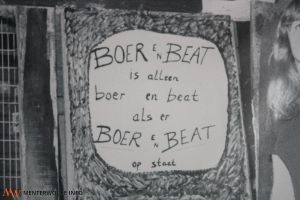 BOER EN BEAT
is alleen
boer en beat
als er
BOER EN BEAT
op staat
MENTERWOLDE.INFO